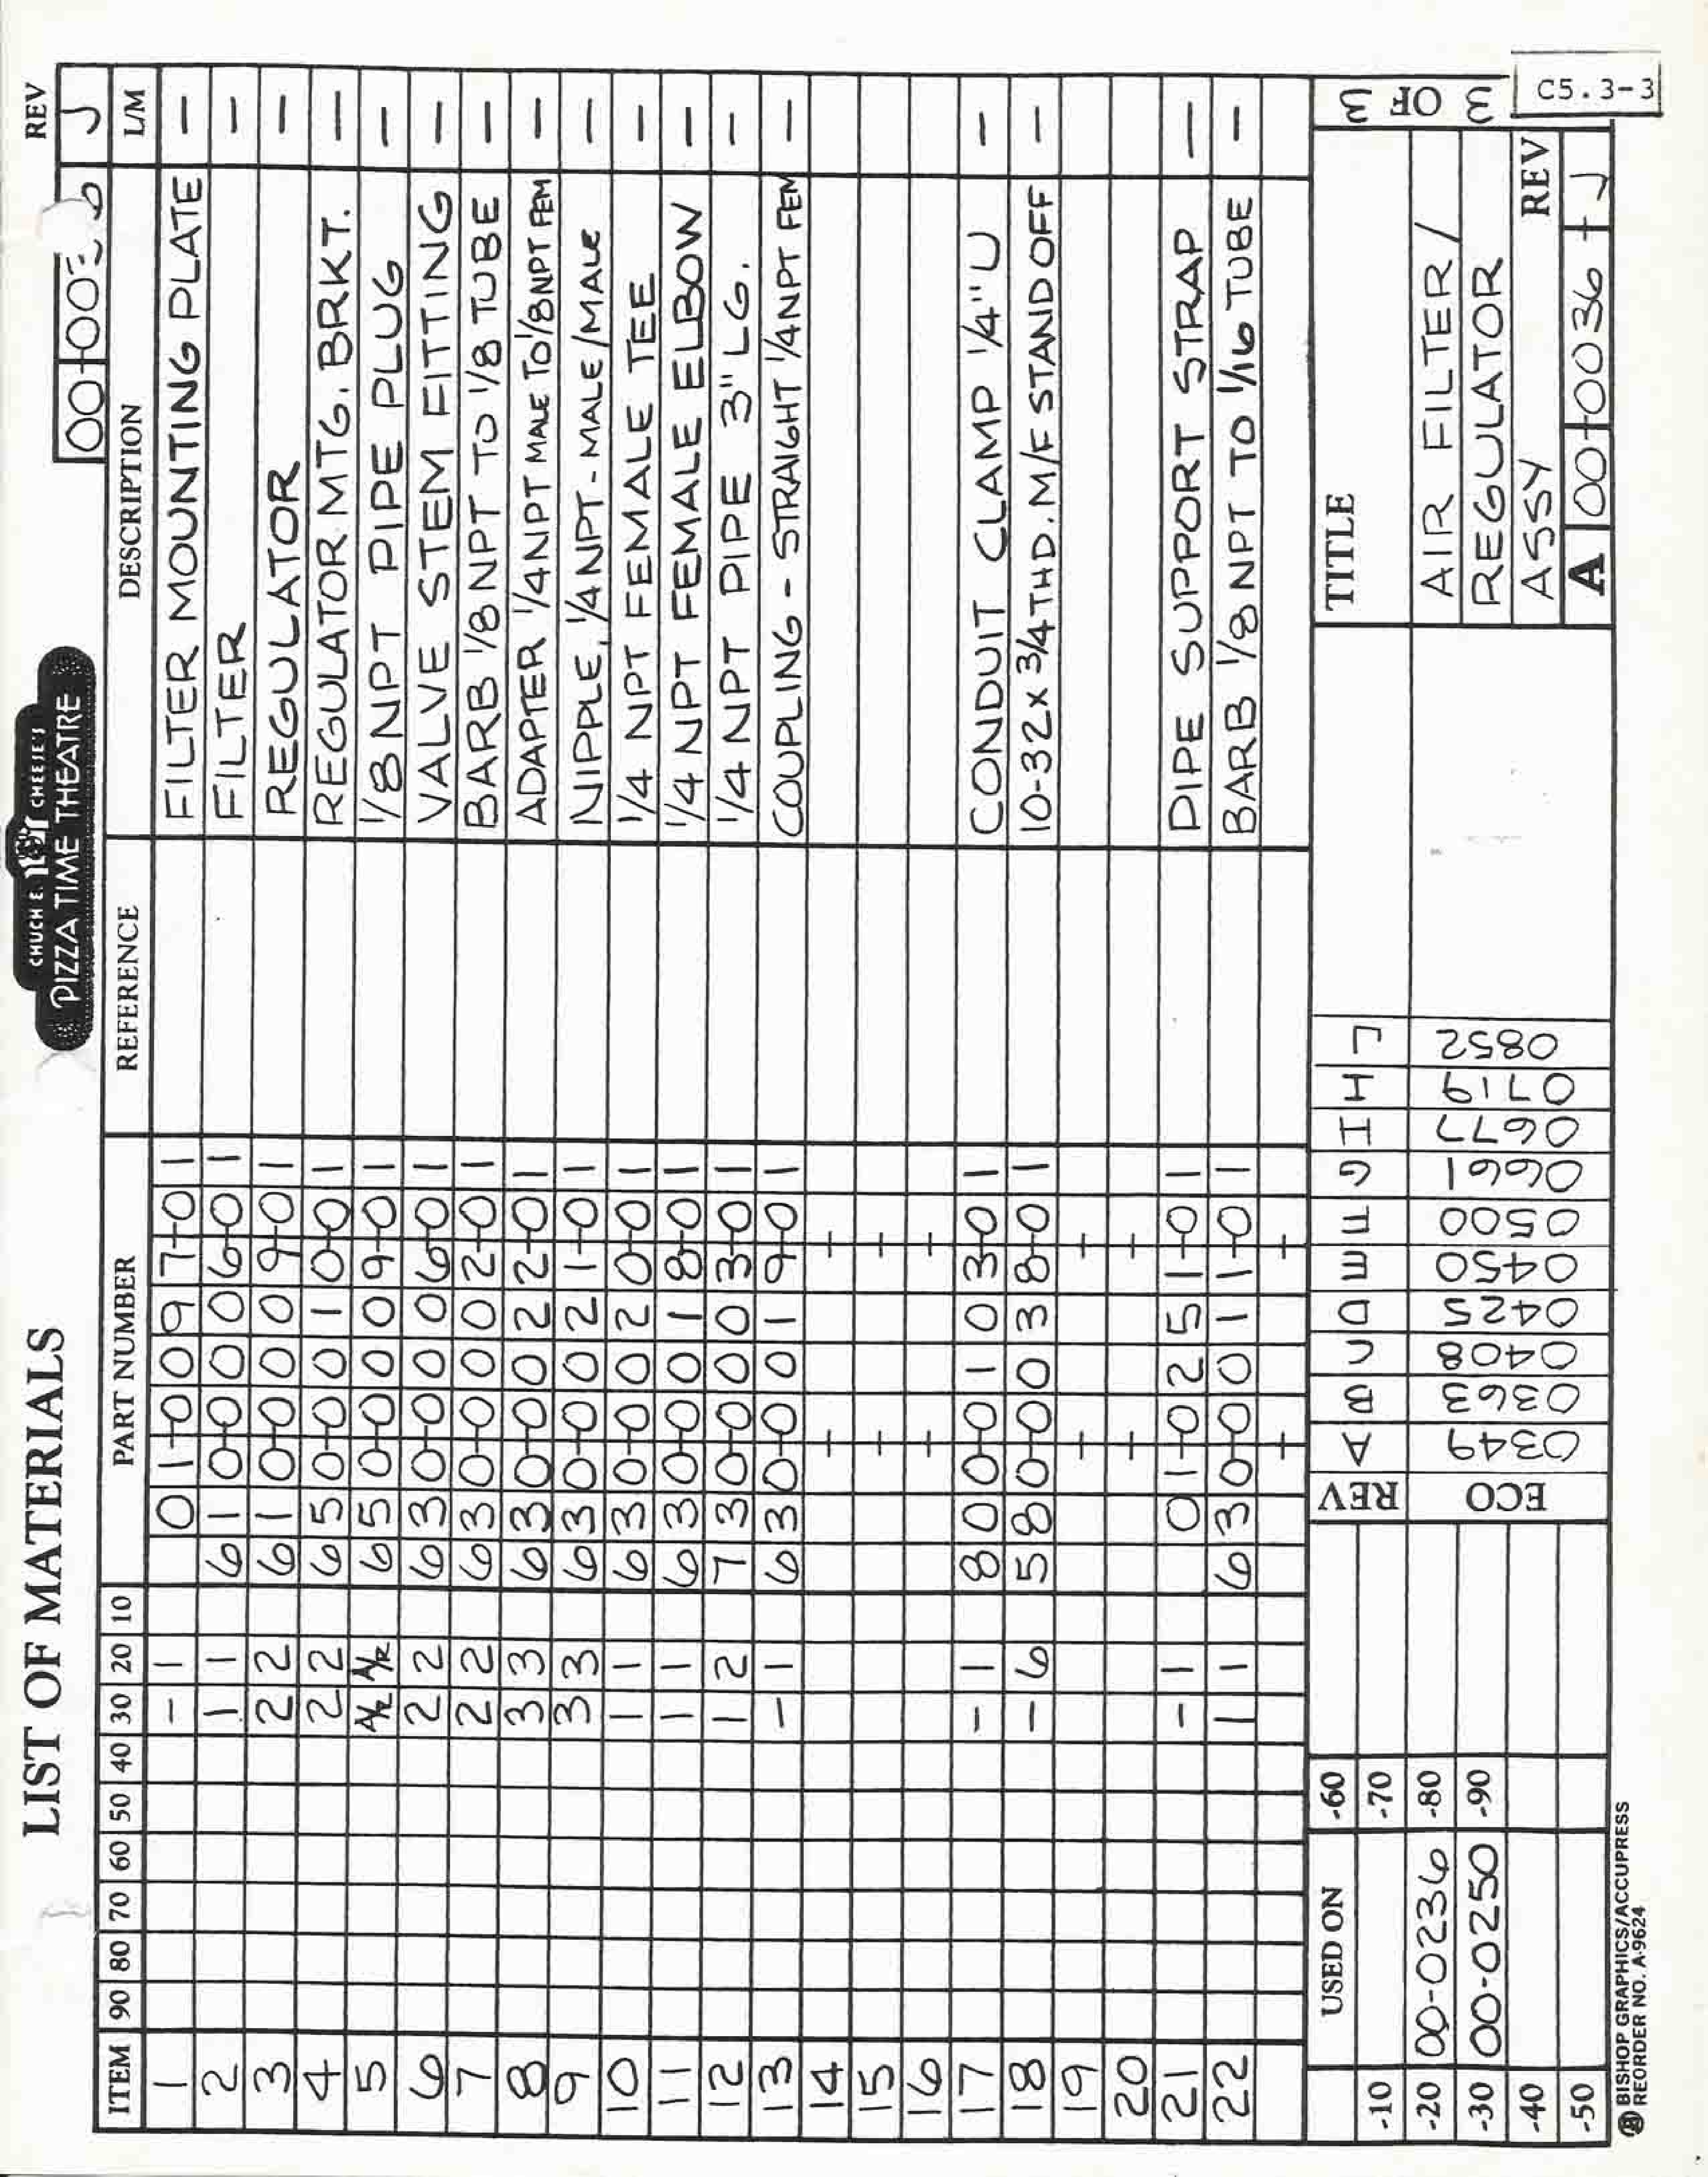 LIST OF MATERIALS
CHUCK E. CHEESE'S
PIZZA TIME THEATRE
REV
00-00 J
ITEM 90 80 70 60 50 40 30 20 10 PART NUMBER REFERENCE DESCRIPTION L/M
1 - 1 01-0097-01 FILTER MOUNTING PLATE -
2 1 1 610-0006-01 FILTER -
3 2 2 610-0009-01 REGULATOR -
4 2 2 650-0010-01 REGULATOR MTG. BRKT. -
5 A/R A/R 650-0009-01 1/8 NPT PIPE PLUG -
6 2 2 630-0006-01 VALVE STEM FITTING -
7 2 2 630-0002-01 BARB 1/8 NPT TO 1/8 TUBE -
8 3 3 630-0022-01 ADAPTER 1/4 NPT MALE TO 1/8 NPT FEM -
9 3 3 630-0021-01 NIPPLE, 1/4 NPT - MALE/MALE -
10 1 1 630-0020-01 1/4 NPT FEMALE TEE -
11 1 1 630-0018-01 1/4 NPT FEMALE ELBOW -
12 1 2 730-0003-01 1/4 NPT PIPE 3" LG. -
13 - 1 630-0019-01 COUPLING - STRAIGHT 1/4 NPT FEM -
14
15
16
17 - 1 800-0103-01 CONDUIT CLAMP 1/4" U -
18 - 6 580-0038-01 10-32 x 3/4 THD. M/F STAND OFF -
19
20
21 - 1 01-0251-01 PIPE SUPPORT STRAP -
22 1 1 630-0011-01 BARB 1/8 NPT TO 1/16 TUBE -
USED ON
-60
-10 -70
-20 00-0236 -80
-30 00-0250 -90
-40
-50
REV A B C D E F G H I J
ECO 0349 0363 0408 0425 0450 0500 0661 0677 0719 0852
TITLE
AIR FILTER /
REGULATOR
ASSY
REV
A 00-0036 - J
3 OF 3
C5.3-3
BISHOP GRAPHICS/ACCUPRESS
REORDER NO. A-9624